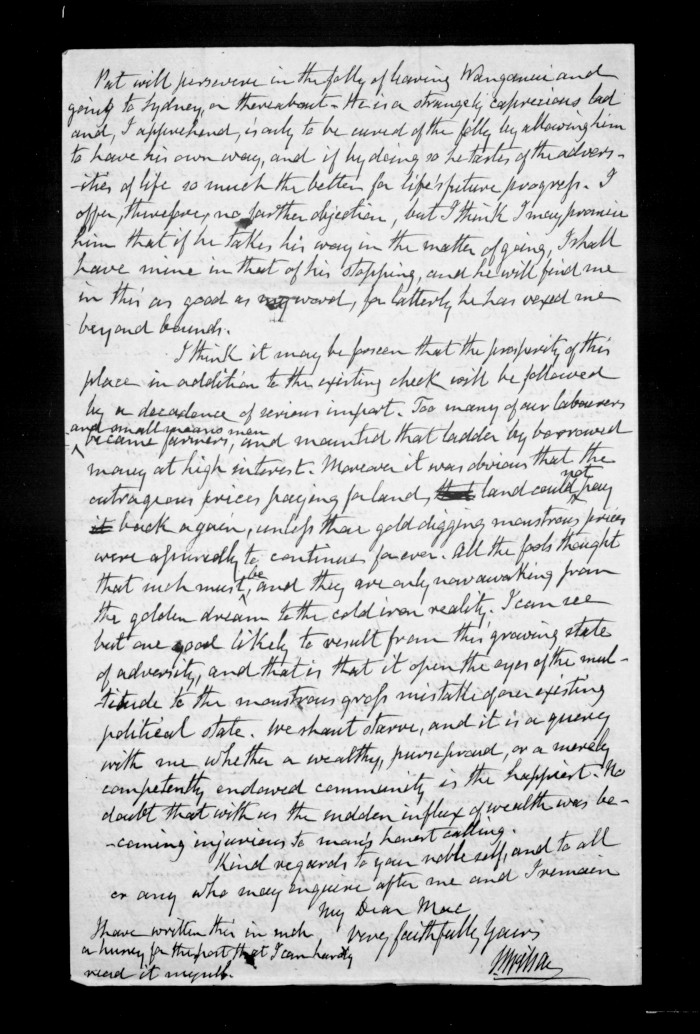 Pat will persevere in the folly of leaving Wanganui and
going to Sydney, or thereabout - He is a strangely capricious lad
and, I apprehend, is only to be cured of the folly by allowing him
to have his own way, and if by doing so he tastes of the advers-
-ities of life so much the better for life's future progress. I
offer, therefore, no farther objection, but I think I may promise
him that if he takes his way in the matter of going, I shall
have mine in that of his stopping, and he will find me
in this as good as my word, for latterly he has vexed me
beyond bounds.
I think it may be forseen that the prosperity of this
place in addition to the existing check will be followed
by a decadence of serious import. Too many of our labourers
and small means men
became farmers, and mounted that ladder by borrowed
money at high interest. Moreover it was obvious that the
outrageous prices paying for land, land could not pay
back again, unless those gold digging monstrous prices
were assuredly to continue for ever. All the fools thought
that such must be, and they are only now awaking from
the golden dream to the cold iron reality. I can see
but one good likely to result from this growing state
of adversity, and that is that it open the eyes of the mul-
-titude to the monstrous gross mistake of our existing
political state. We shant starve, and it is a query
with me whether a wealthy, purseproud, or a merely
competently endowed community is the happiest. No
doubt that with us the sudden influx of wealth was be-
-coming injurious to man's honest calling.
Kind regards to your noble self, and to all
or any who may enquire after me and I remain
My Dear Mac
very faithfully yours
I have written this in such
a hurry for the post that I can hardly
read it myself.